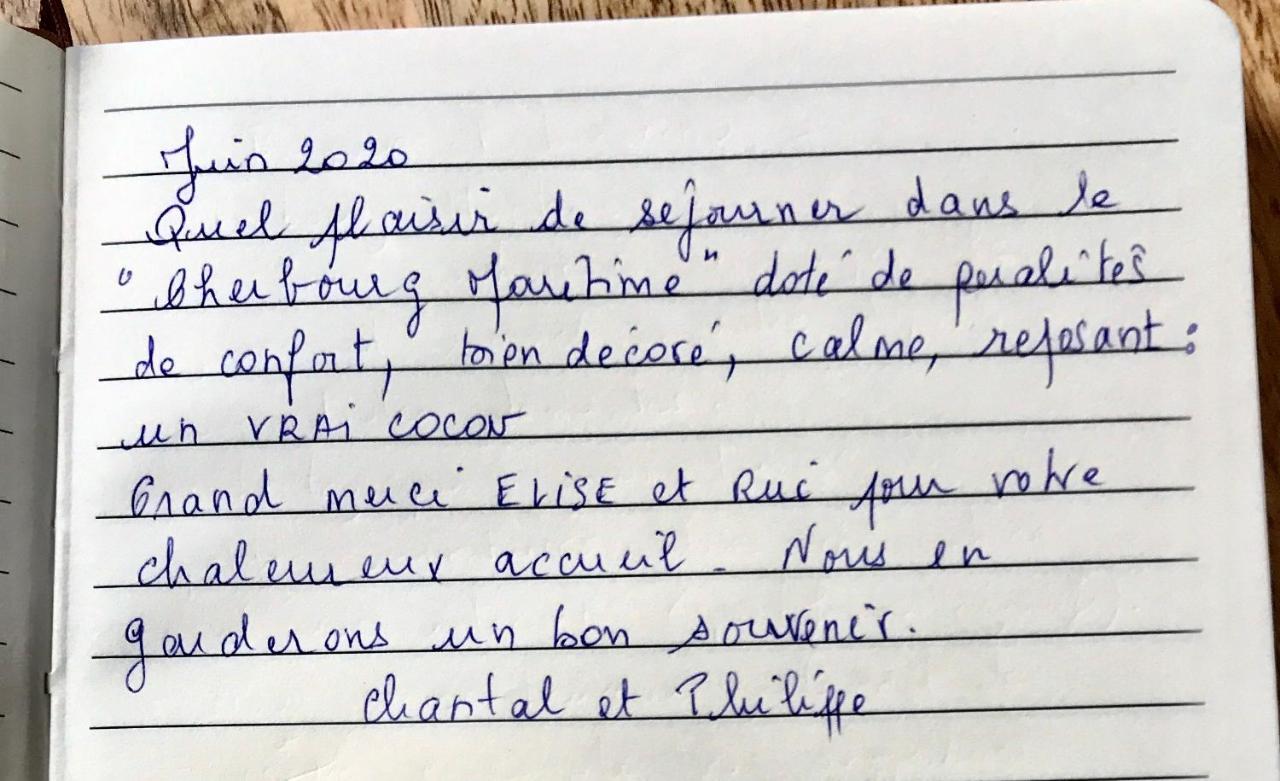 Juin 2020
Quel plaisir de séjourner dans le
"Cherbourg Maritime" doté de qualités
de confort, bien décoré, calme, reposant :
un VRAi COCON
Grand merci ELiSE et Rui pour votre
chaleureux accueil. Nous en
garderons un bon souvenir.
Chantal et Philippe